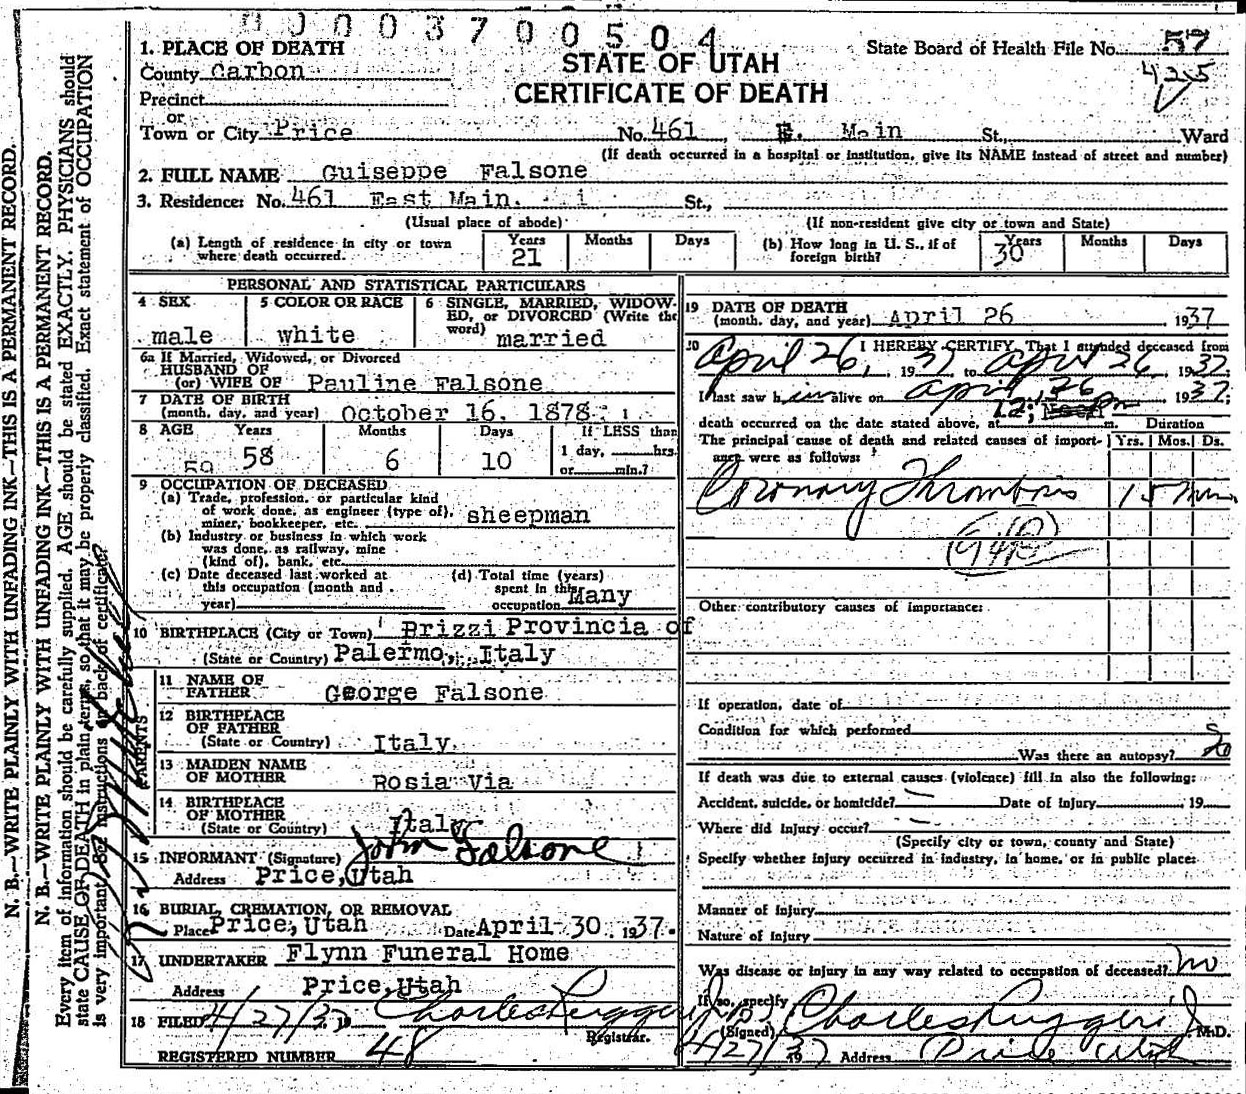 00003700504
1. PLACE OF DEATH
County Carbon
Precinct
or
Town or City Price
STATE OF UTAH
CERTIFICATE OF DEATH
State Board of Health File No. 57
425
No. 461 E. Main St., Ward
(If death occurred in a hospital or institution, give its NAME instead of street and number)
2. FULL NAME Guiseppe Falsone
3. Residence: No. 461 East Main. St.,
(Usual place of abode) (If non-resident give city or town and State)
(a) Length of residence in city or town where death occurred. Years 21 Months Days
(b) How long in U. S., if of foreign birth? Years 30 Months Days
PERSONAL AND STATISTICAL PARTICULARS
4 SEX male
5 COLOR OR RACE white
6 SINGLE, MARRIED, WIDOWED, or DIVORCED (Write the word) married
6a If Married, Widowed, or Divorced
HUSBAND OF
(or) WIFE OF Pauline Falsone
7 DATE OF BIRTH
(month, day, and year) October 16, 1878
8 AGE Years 59 58 Months 6 Days 10 If LESS than 1 day, hrs. or min.?
9 OCCUPATION OF DECEASED
(a) Trade, profession, or particular kind
of work done, as engineer (type of),
miner, bookkeeper, etc. sheepman
(b) Industry or business in which work
was done, as railway, mine
(kind of), bank, etc.
(c) Date deceased last worked at
this occupation (month and
year)
(d) Total time (years)
spent in this
occupation Many
10 BIRTHPLACE (City or Town) Prizzi Provincia of
(State or Country) Palermo, Italy
PARENTS
11 NAME OF
FATHER George Falsone
12 BIRTHPLACE
OF FATHER
(State or Country) Italy
13 MAIDEN NAME
OF MOTHER Rosia Via
14 BIRTHPLACE
OF MOTHER
(State or Country) Italy
15 INFORMANT (Signature) John Falsone
Address Price, Utah
16 BURIAL, CREMATION, OR REMOVAL
Place Price, Utah Date April 30, 1937.
17 UNDERTAKER Flynn Funeral Home
Address Price, Utah
18 FILED 4/27/37 19 Charles Ruggeri Jr
Registrar.
REGISTERED NUMBER 48
19 DATE OF DEATH
(month, day, and year) April 26, 1937
20 I HEREBY CERTIFY, That I attended deceased from
April 26, 1937 to April 26, 1937;
I last saw him alive on April 26, 1937;
death occurred on the date stated above, at 12; Noon pm m.
Duration
The principal cause of death and related causes of importance were as follows: Yrs. Mos. Ds.
Coronary Thrombosis 15 min
(94B)
Other contributory causes of importance:
If operation, date of
Condition for which performed
Was there an autopsy? No
If death was due to external causes (violence) fill in also the following:
Accident, suicide, or homicide? — Date of injury 19
Where did injury occur? —
(Specify city or town, county and State)
Specify whether injury occurred in industry, in home, or in public place:
Manner of Injury
Nature of Injury
Was disease or injury in any way related to occupation of deceased? no
If so, specify
(Signed) Charles Ruggeri Jr M.D.
4/27/37 19 Address Price Utah
N. B.—WRITE PLAINLY WITH UNFADING INK—THIS IS A PERMANENT RECORD.
N. B.—WRITE PLAINLY WITH UNFADING INK—THIS IS A PERMANENT RECORD.
Every item of information should be carefully supplied. AGE should be stated EXACTLY. PHYSICIANS should
state CAUSE OF DEATH in plain terms, so that it may be properly classified. Exact statement of OCCUPATION
is very important. See instructions on back of certificate.